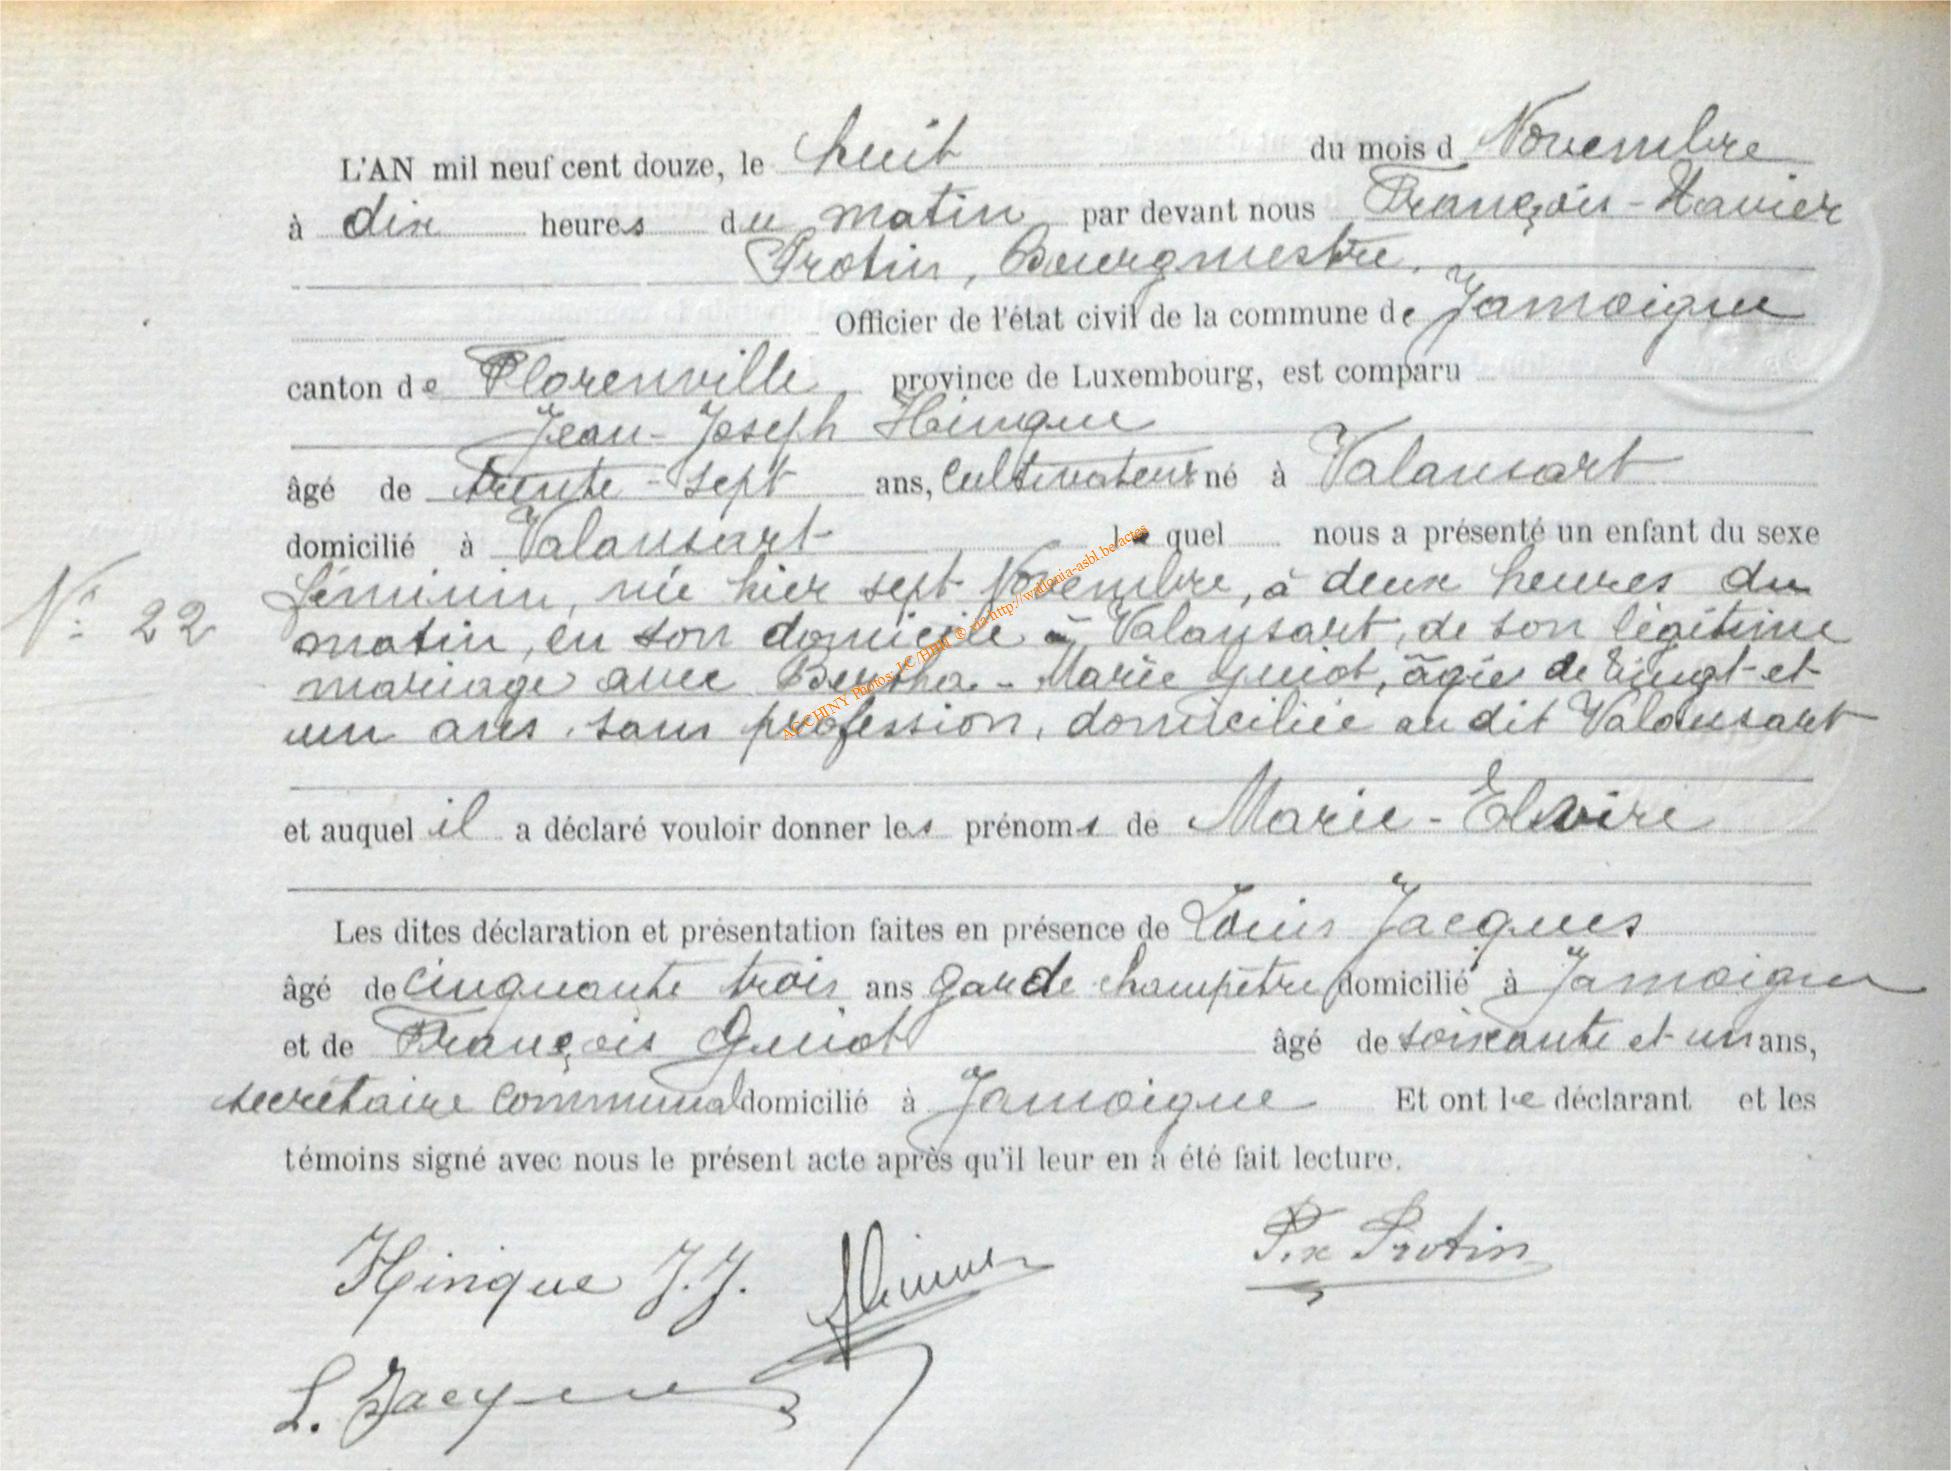 L'AN mil neuf cent douze, le huit du mois d Novembre
à dix heures du matin par devant nous François-Xavier
Protin, Bourgmestre.
Officier de l'état civil de la commune de Jamoigne
canton de Florenville province de Luxembourg, est comparu
Jean-Joseph Hinque
âgé de trente-sept ans, cultivateur né à Valansart
domicilié à Valansart lequel nous a présenté un enfant du sexe
féminin, née hier sept Novembre, à deux heures du
N° 22
matin, en son domicile à Valansart, de son légitime
mariage avec Bertha-Marie Guiot, âgée de vingt-et-
un ans, sans profession, domiciliée au dit Valansart
et auquel il a déclaré vouloir donner les prénoms de Marie-Elvire
Les dites déclaration et présentation faites en présence de Louis Jacques
âgé de cinquante trois ans garde champêtre domicilié à Jamoigne
et de François Guiot âgé de soixante et un ans,
secrétaire communal domicilié à Jamoigne Et ont le déclarant et les
témoins signé avec nous le présent acte après qu'il leur en a été fait lecture.
Hinque J.J.
Fx Protin
L. Jacques
AC CHINY Photos J.C/HnM ® via http://wallonia-asbl.be/actes